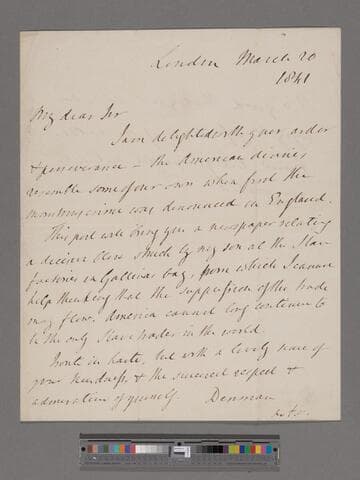 London March 20
1841
My dear Sir
I am delighted with your ardor
& perseverance – the American divines
resemble some of our own when first the
monstrous crime was denounced in England.
This post will bring you a newspaper relating
a decisive blow struck by my son at the Slave
factories in Gallinas bay, from which I cannot
help thinking that the suppression of the trade
may flow. America cannot long continue to
be the only Slave trader in the world.
Write in haste, but with a lively sense of
your kindness & the sincerest respect &
admiration of yourself Denman